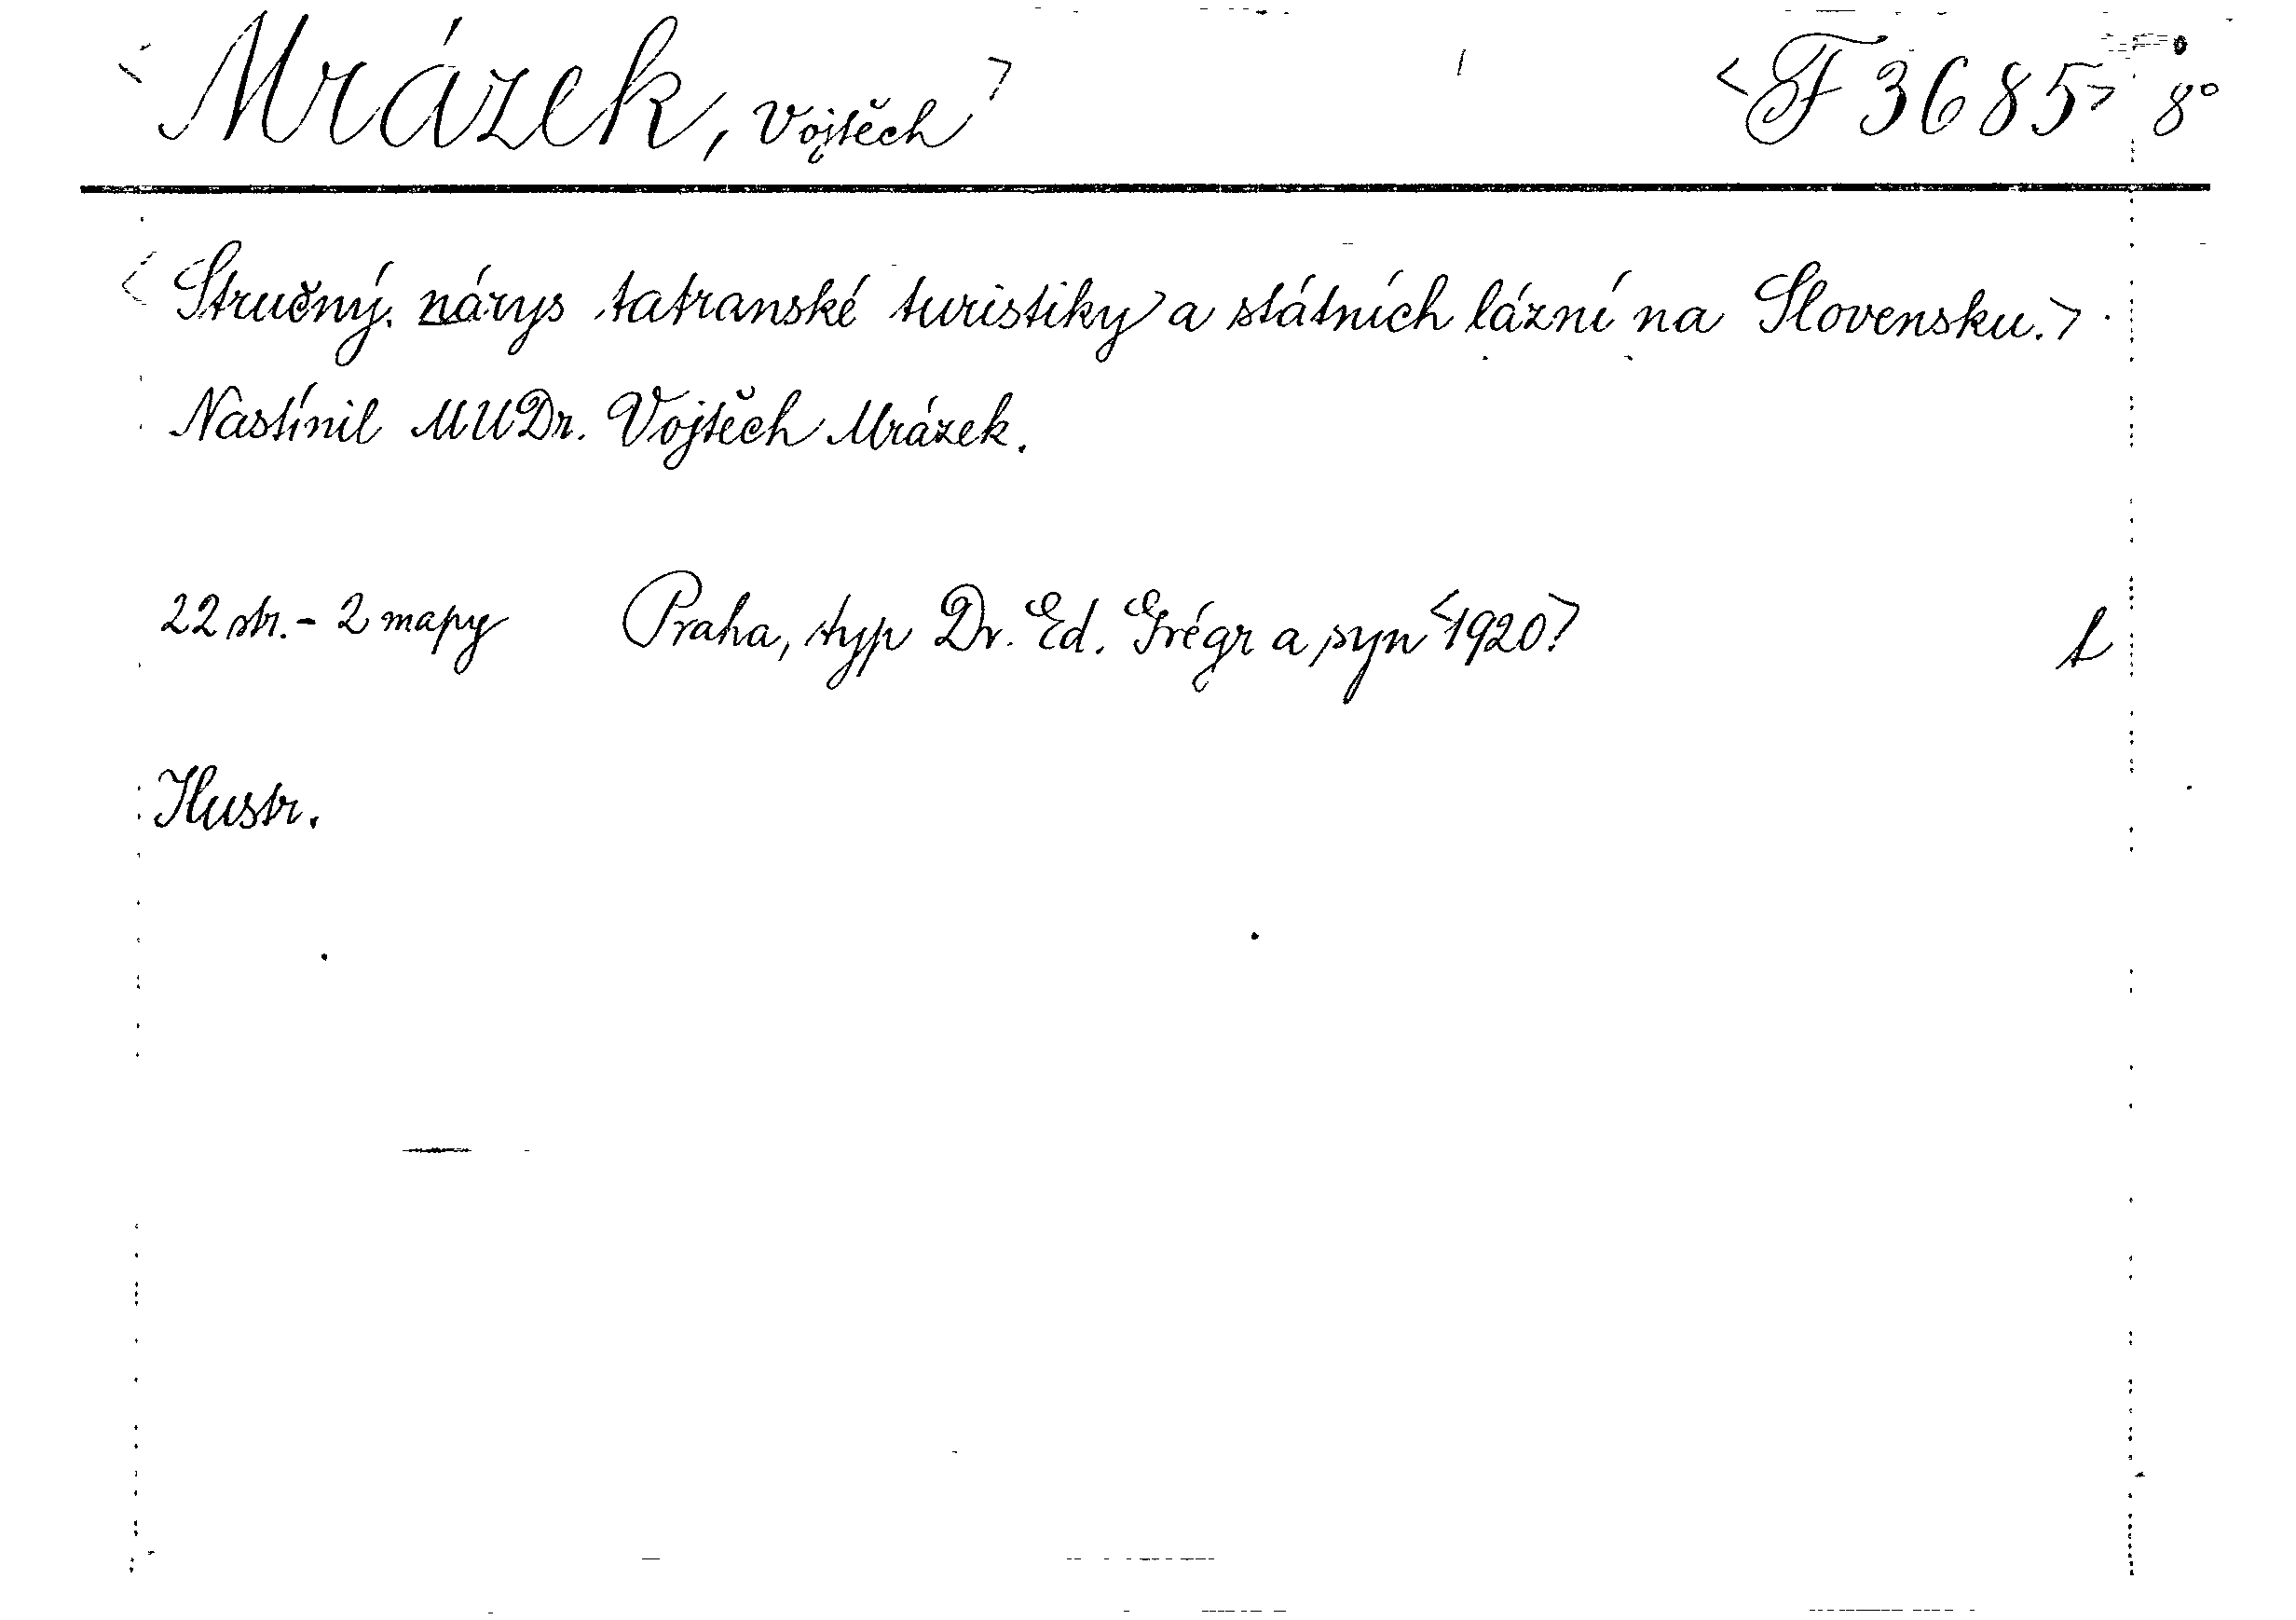 <Mrázek, Vojtěch> <F 3685> 8°
<Stručný nárys tatranské turistiky a státních lázní na Slovensku.>
Nastínil MUDr. Vojtěch Mrázek.
22 str. - 2 mapy Praha, typ Dr. Ed. Grégr a syn <1920>
Ilustr.